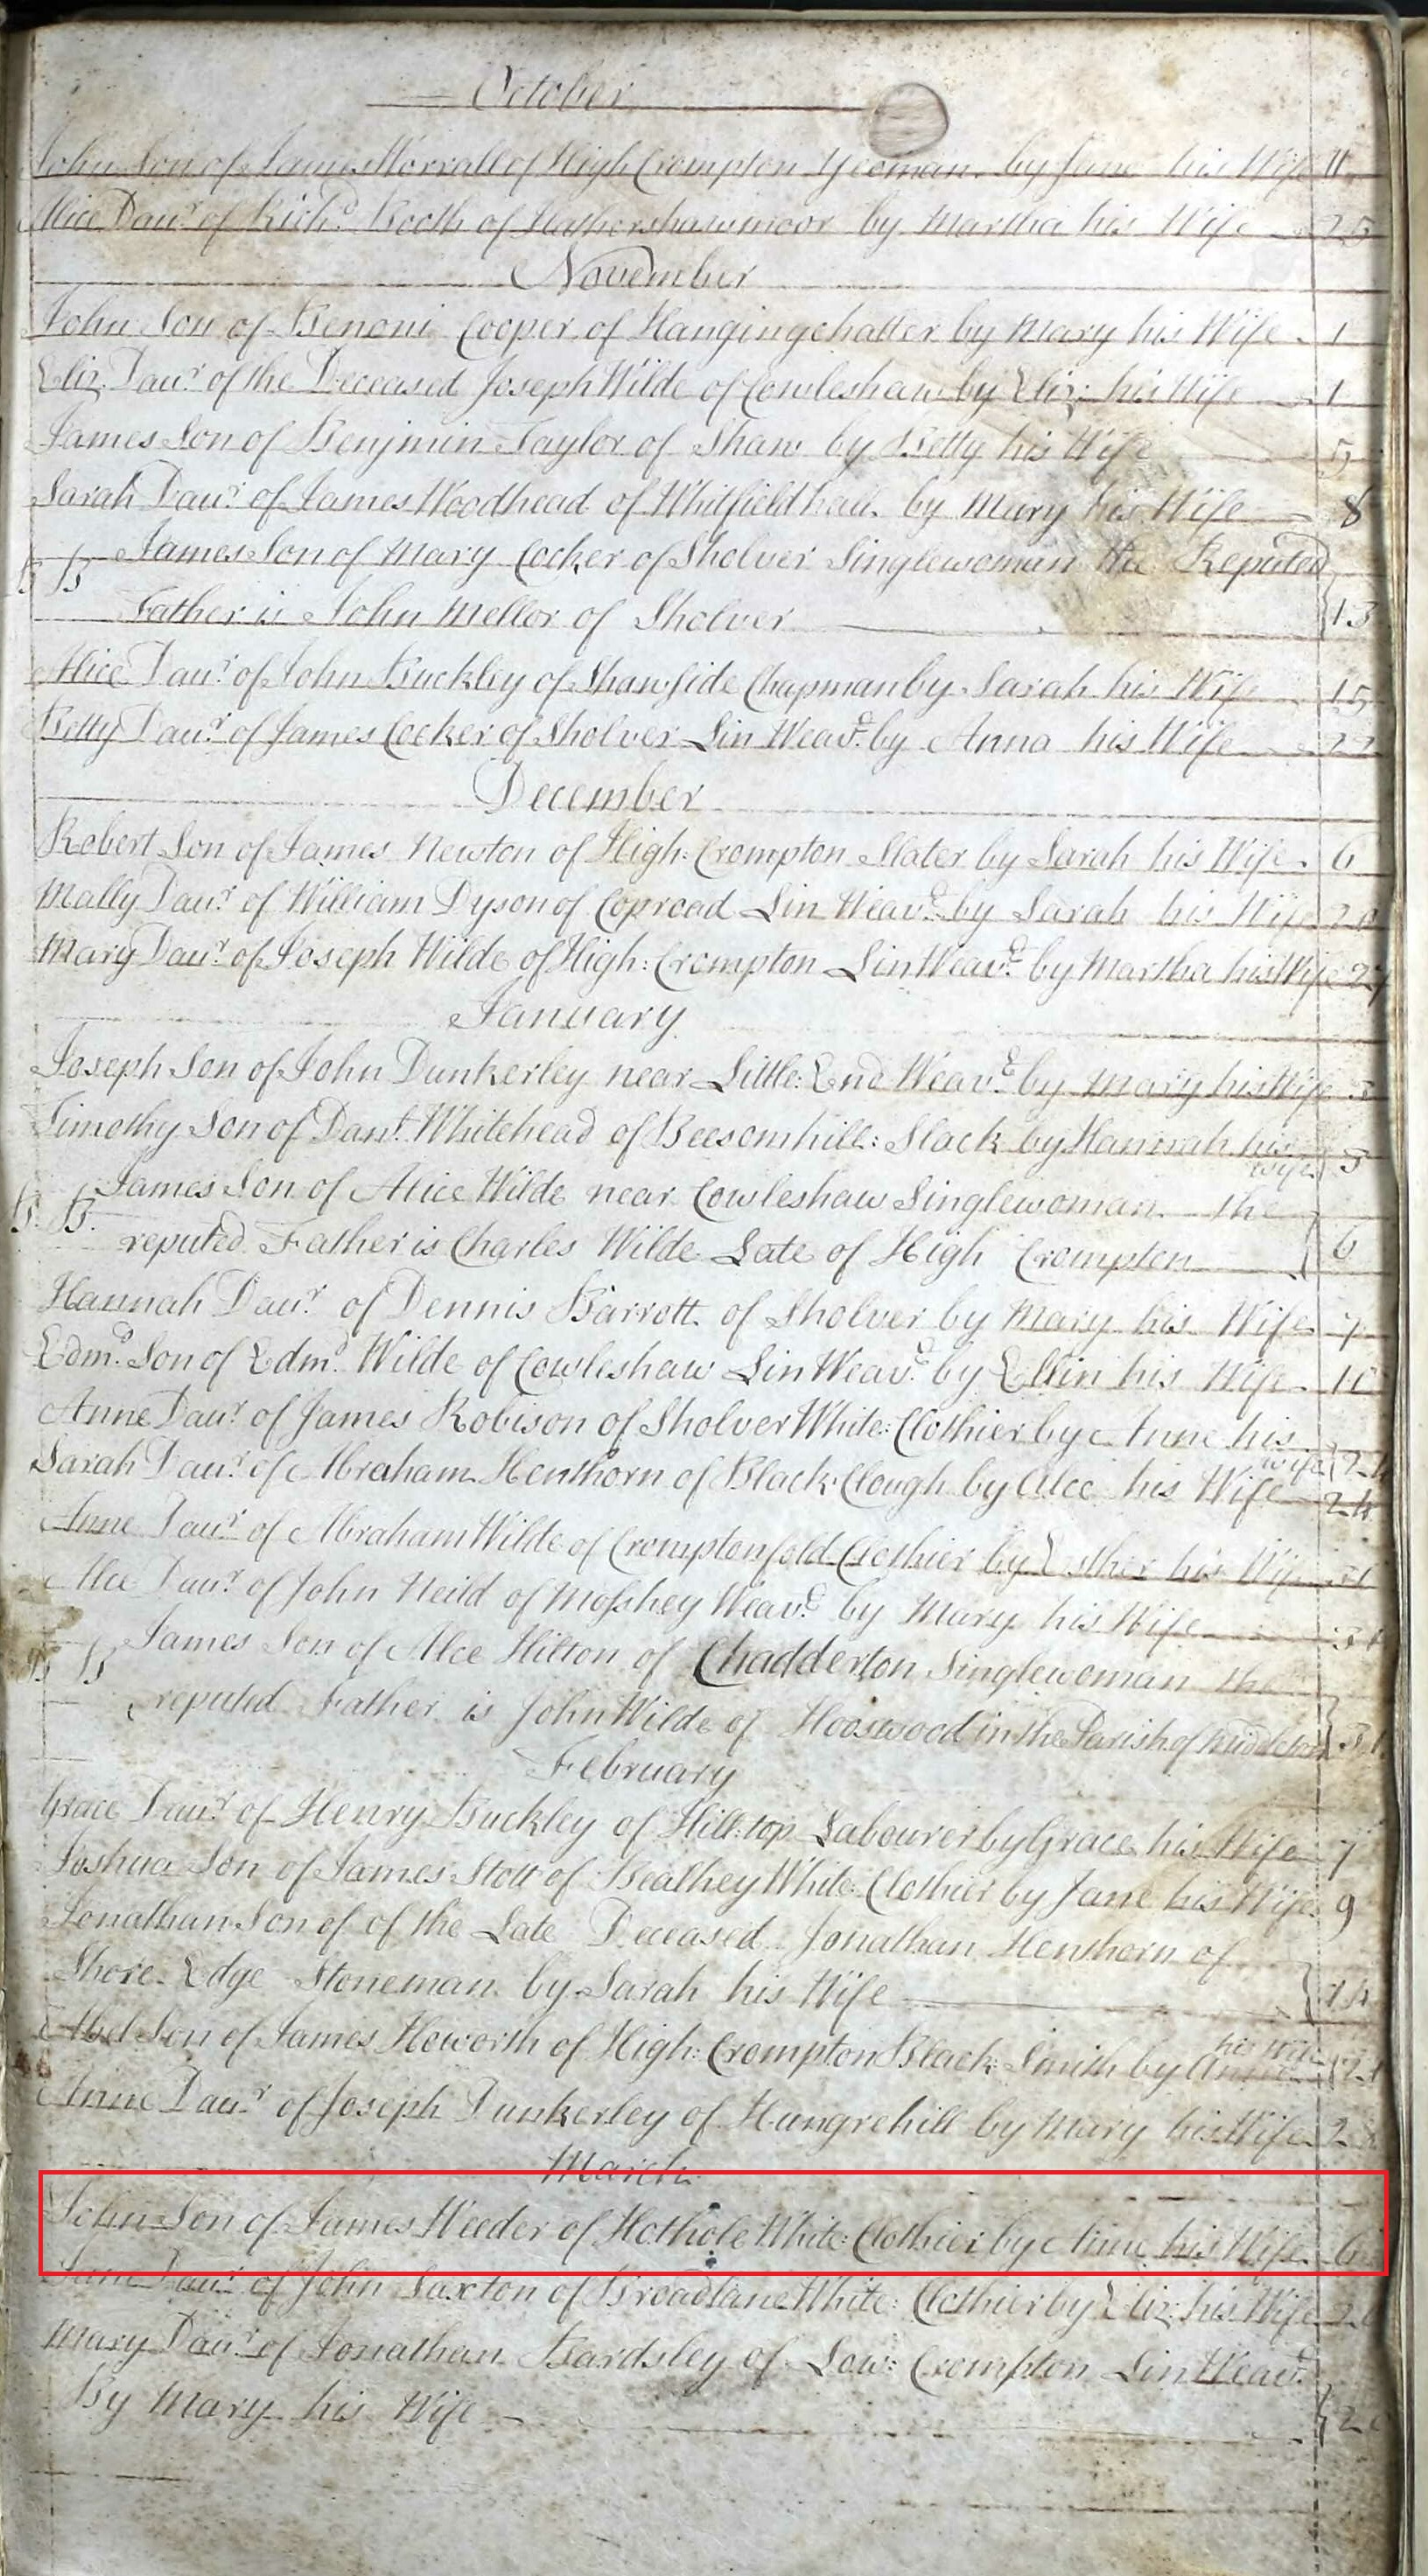 October
John Son of James Worrall of High Crompton Yeoman by Jane his Wife 11
Alice Daur. of Richd. Booth of Hathershawmoor by Martha his Wife 25
November
John Son of Benoni Cooper of Hangingchatter by Mary his Wife 1
Eliz. Daur. of the Deceased Joseph Wilde of Cowleshaw by Eliz: his Wife 1
James Son of Benjmin Taylor of Shaw by Betty his Wife 5
Sarah Daur. of James Woodhead of Whitfieldhall by Mary his Wife 8
James Son of Mary Cocker of Sholver Singlewoman the Reputed
B B
Father is John Mellor of Sholver 13
Alice Daur. of John Buckley of Shawside Chapman by Sarah his Wife 15
Betty Daur. of James Cocker of Sholver Lin Weavr. by Anna his Wife 22
December
Robert Son of James Newton of High: Crompton Slater by Sarah his Wife 6
Mally Daur. of William Dyson of Coproad Lin Weavr. by Sarah his Wife
Mary Daur. of Joseph Wilde of High: Crompton Lin Weavr. by Martha his Wife 27
January
Joseph Son of John Dunkerley near Little: End Weavr. by Mary his Wife 3
Timothy Son of Danl. Whitehead of Beesomhill: Slack by Hannah his
wife 3
James Son of Alice Wilde near Cowleshaw Singlewoman the
B. B.
reputed Father is Charles Wilde Late of High Crompton 6
Hannah Daur. of Dennis Barrott of Sholver by Mary his Wife 7
Edmd. Son of Edmd. Wilde of Cowleshaw Lin Weavr. by Ellin his Wife 10
Anne Daur. of James Robison of Sholver White: Clothier by Anne his
wife
Sarah Daur. of Abraham Henthorn of Black: Clough by Alce his Wife 24
Anne Daur. of Abraham Wilde of Cromptonfold Clothier by Esther his Wife
Alce Daur. of John Neild of Mosshey Weavr. by Mary his Wife 31
James Son of Alce Hilton of Chadderton Singlewoman the
B B
reputed Father is John Wilde of Hooswood in the Parish of Middleton 31
February
Grace Daur. of Henry Buckley of Hill: top Labourer by Grace his Wife 7
Joshua Son of James Stott of Bealhey White: Clothier by Jane his Wife 9
Jonathan Son of of the Late Deceased Jonathan Henthorn of
Shore Edge Stoneman by Sarah his Wife 14
his wife
Abel Son of James Howorth of High: Crompton Black: Smith by Anne
Anne Daur. of Joseph Dunkerley of Hungrehill by Mary his Wife
March
John Son of James Weeder of Hothole White: Clothier by Anne his Wife 6
Jane Daur. of John Saxton of Broadlane White: Clothier by Eliz: his Wife
Mary Daur. of Jonathan Bardsley of Low: Crompton Lin Weavr.
By Mary his Wife